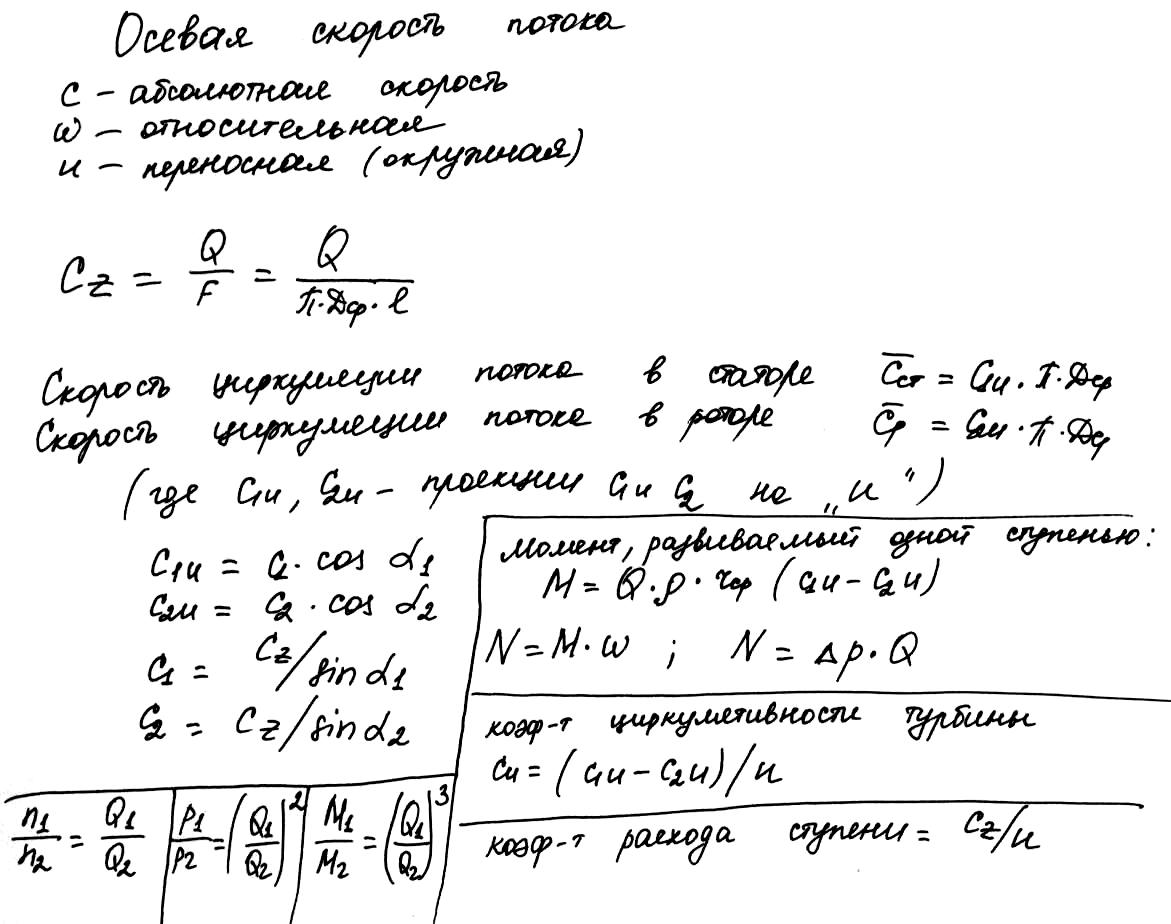 Осевая скорость потока
c – абсолютная скорость
w – относительная
u – переносная (окружная)
Cz = Q/F = Q/(π·Dср·l)
Скорость циркуляции потока в статоре C̅ст = C1u·π·Dср
Скорость циркуляции потока в роторе C̅р = C2u·π·Dср
(где C1u, C2u – проекции C1 и C2 на „u“)
C1u = C1·cos α1
C2u = C2·cos α2
C1 = Cz/sin α1
C2 = Cz/sin α2
Момент, развиваемый одной ступенью:
M = Q·ρ·rср (C1u – C2u)
N = M·ω ; N = Δp·Q
коэф-т циркулятивности турбины
Cu = (C1u – C2u)/u
коэф-т расхода ступени = Cz/u
n1/n2 = Q1/Q2
p1/p2 = (Q1/Q2)²
M1/M2 = (Q1/Q2)³